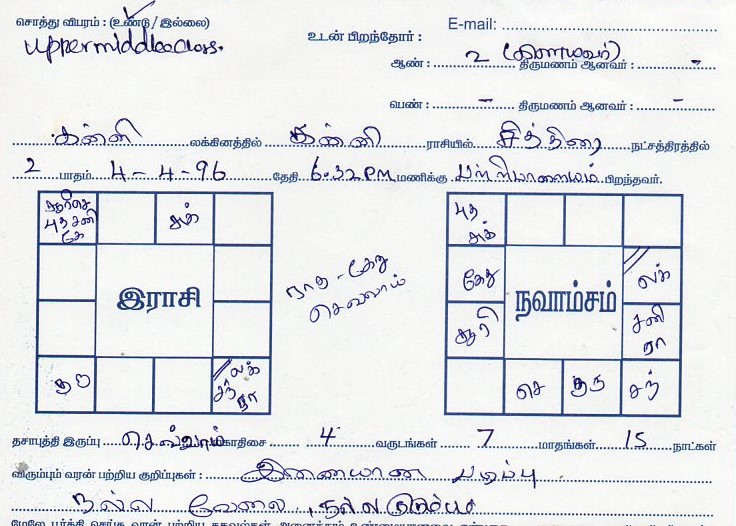 சொத்து விபரம் : (உண்டு / இல்லை)
E-mail:
uppermiddleclass.
உடன் பிறந்தோர் :
ஆண் : 2 (இளையவர்) திருமணம் ஆனவர் : -
பெண் : - திருமணம் ஆனவர் : -
கன்னி லக்கினத்தில் கன்னி ராசியில் சித்திரை நட்சத்திரத்தில்
2 பாதம் 4-4-96 தேதி 6.32 PM மணிக்கு பள்ளிபாளையம் பிறந்தவர்.
சூரி செ
புத சனி
கே
சுக்
இராசி
குரு
லக்
சந்
ரா
ராகு - கேது
செவ்வாய்
புத
சுக்
கேது
லக்
நவாம்சம்
சூரி
சனி
ரா
செ
குரு
சந்
தசாபுத்தி இருப்பு செவ்வாய் மகாதிசை 4 வருடங்கள் 7 மாதங்கள் 15 நாட்கள்
விரும்பும் வரன் பற்றிய குறிப்புகள் : இணையான படிப்பு
நல்ல வேலை, நல்ல குடும்பம்